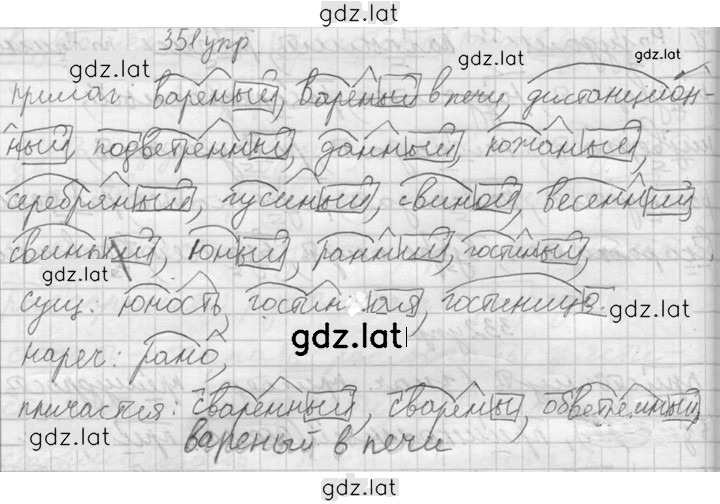 gdz.lat
351 упр
gdz.lat
прилаг: вареный, вареный в печи, дистанцион-
ный, подветренный, данный, кожаный,
серебряный, гусиный, свиной, весенний,
свиный, юный, ранний, гостиный,
gdz.lat
сущ: юность, гостиная, гостиница. gdz.lat
gdz.lat
нареч: рано,
причастия: сваренный, сварены, обветренный
gdz.lat вареный в печи
gdz.lat